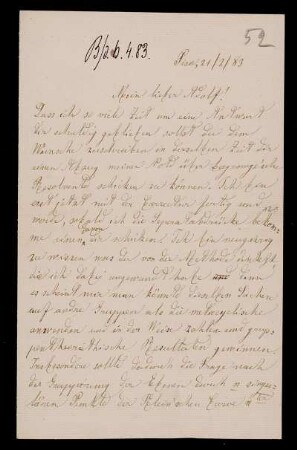 B/26.4.83.
52
Pisa, 21/3/83
Mein lieber Adolf!
Dass ich so viele Zeit um eine Antwort
Dir schuldig geblieben sollst du dem
Wunsche zuschreiben in derselben Zeit Dir
einen Abzug meiner Note über
Resolvente schicken zu können. Ich bin
erst jetzt mit der Correctur fertig und
werde, sobald ich die Separatabdrücke bekom-
me einen davon dir schicken. Ich bin neugierig
zu wissen was du von der Methode denkst
die ich dabei angewandt habe und denn
es scheint mir man könnte dieselben Sachen
auf andre Gruppen als die metacyclische
anwenden und in der Weise zahlen und grup-
pentheoretische Resultate gewinnen.
Insbesondere sollte dadurch die Frage nach
der Gruppirung der Ebenen durch n singu-
lären Punkte der Klein'schen Curve n